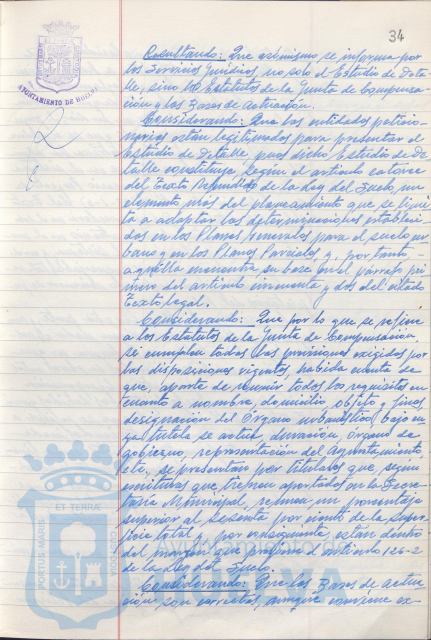 34
AYUNTAMIENTO DE HUELVA
Resultando: Que asimismo se informa por
los Servicios Jurídicos, no solo el Estudio de Deta-
lle, sino los Estatutos de la Junta de Compensa-
ción y las Bases de Actuación.
Considerando: Que las entidades peticio-
narias están legitimadas para presentar el
Estudio de Detalle, pues dicho Estudio de De-
talle constituye, según el artículo catorce
del Texto Refundido de la Ley del Suelo, un
elemento más del planeamiento que se limi-
ta a adaptar las determinaciones estableci-
das en los Planes Generales para el suelo ur-
bano y en los Planes Parciales y, por tanto,
aquélla encuentra su base en el párrafo pri-
mero del artículo cincuenta y dos del citado
Texto legal.
Considerando: Que por lo que se refiere
a los Estatutos de la Junta de Compensación
se cumplen todas las exigidos por
las disposiciones vigentes, habida cuenta de
que, aparte de reunir todos los requisitos en
cuanto a nombre, domicilio, objeto y fines
designación del Órgano urbanístico bajo cu-
ya tutela se actúa, duración, órganos de
gobierno, representación del Ayuntamiento,
etc., se presentan por titulares que, según
escrituras que tienen aportadas en la Secre-
taría Municipal, reúnen un porcentaje
superior al sesenta por ciento de la super-
ficie total y, por consiguiente, están dentro
del margen que el artículo 126-2
de la Ley del Suelo.
Considerando: Que las Bases de Actua-
ción son correctas, aunque conviene ex-
PORTUS MARIS ET TERRAE CUSTODIA
HUELVA